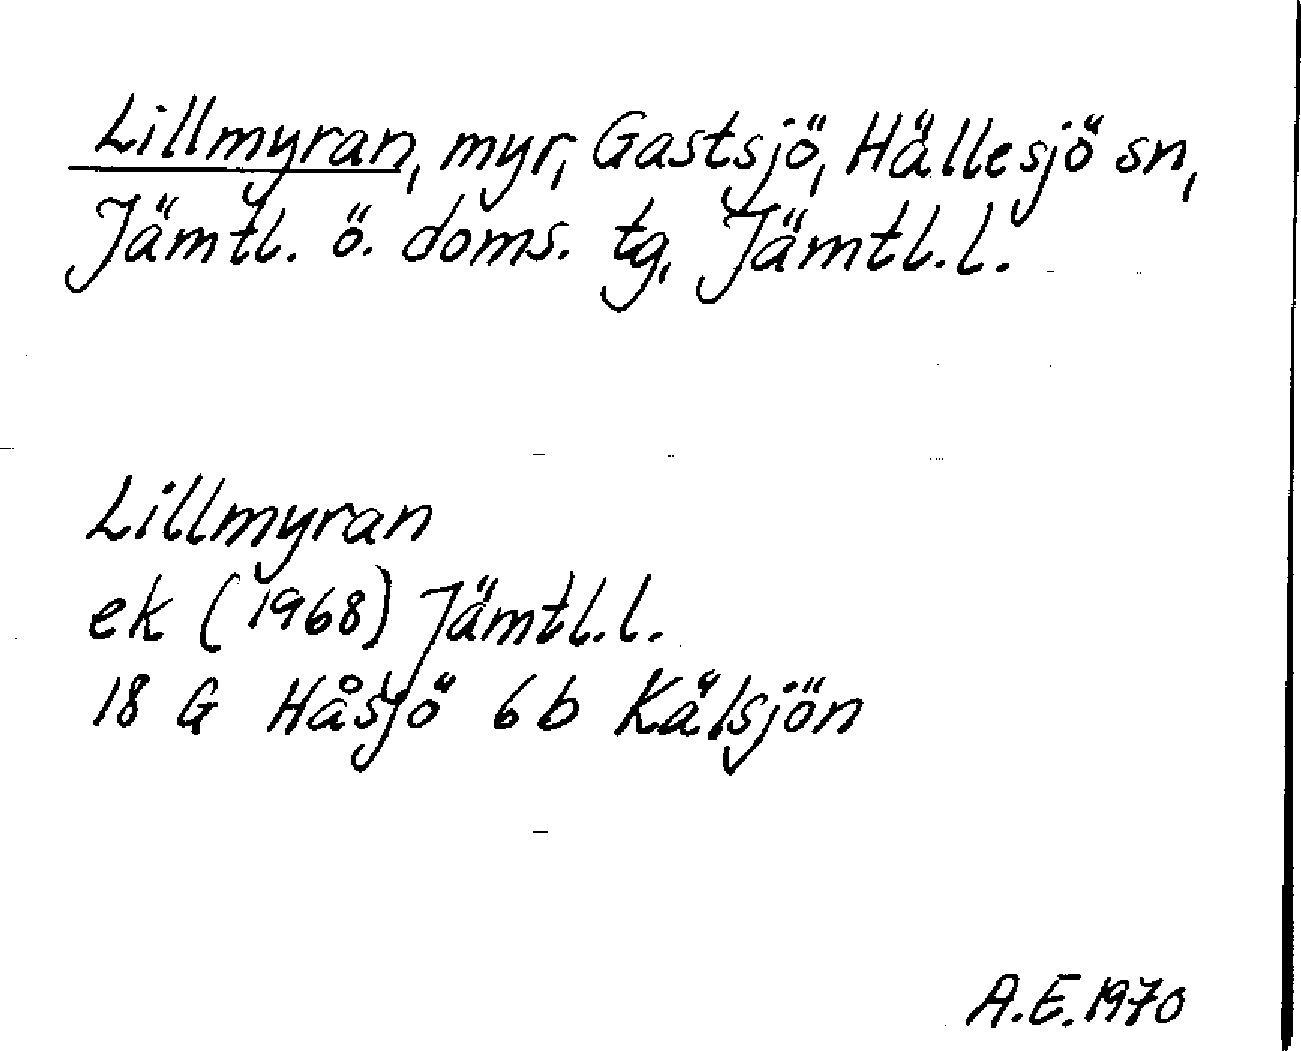 Lillmyran, myr, Gastsjö, Hällesjö sn,
Jämtl. ö. doms. tg, Jämtl.l.
Lillmyran
ek (1968) Jämtl.l.
18 G Håsjö 6 b Kälsjön
A.E. 1970